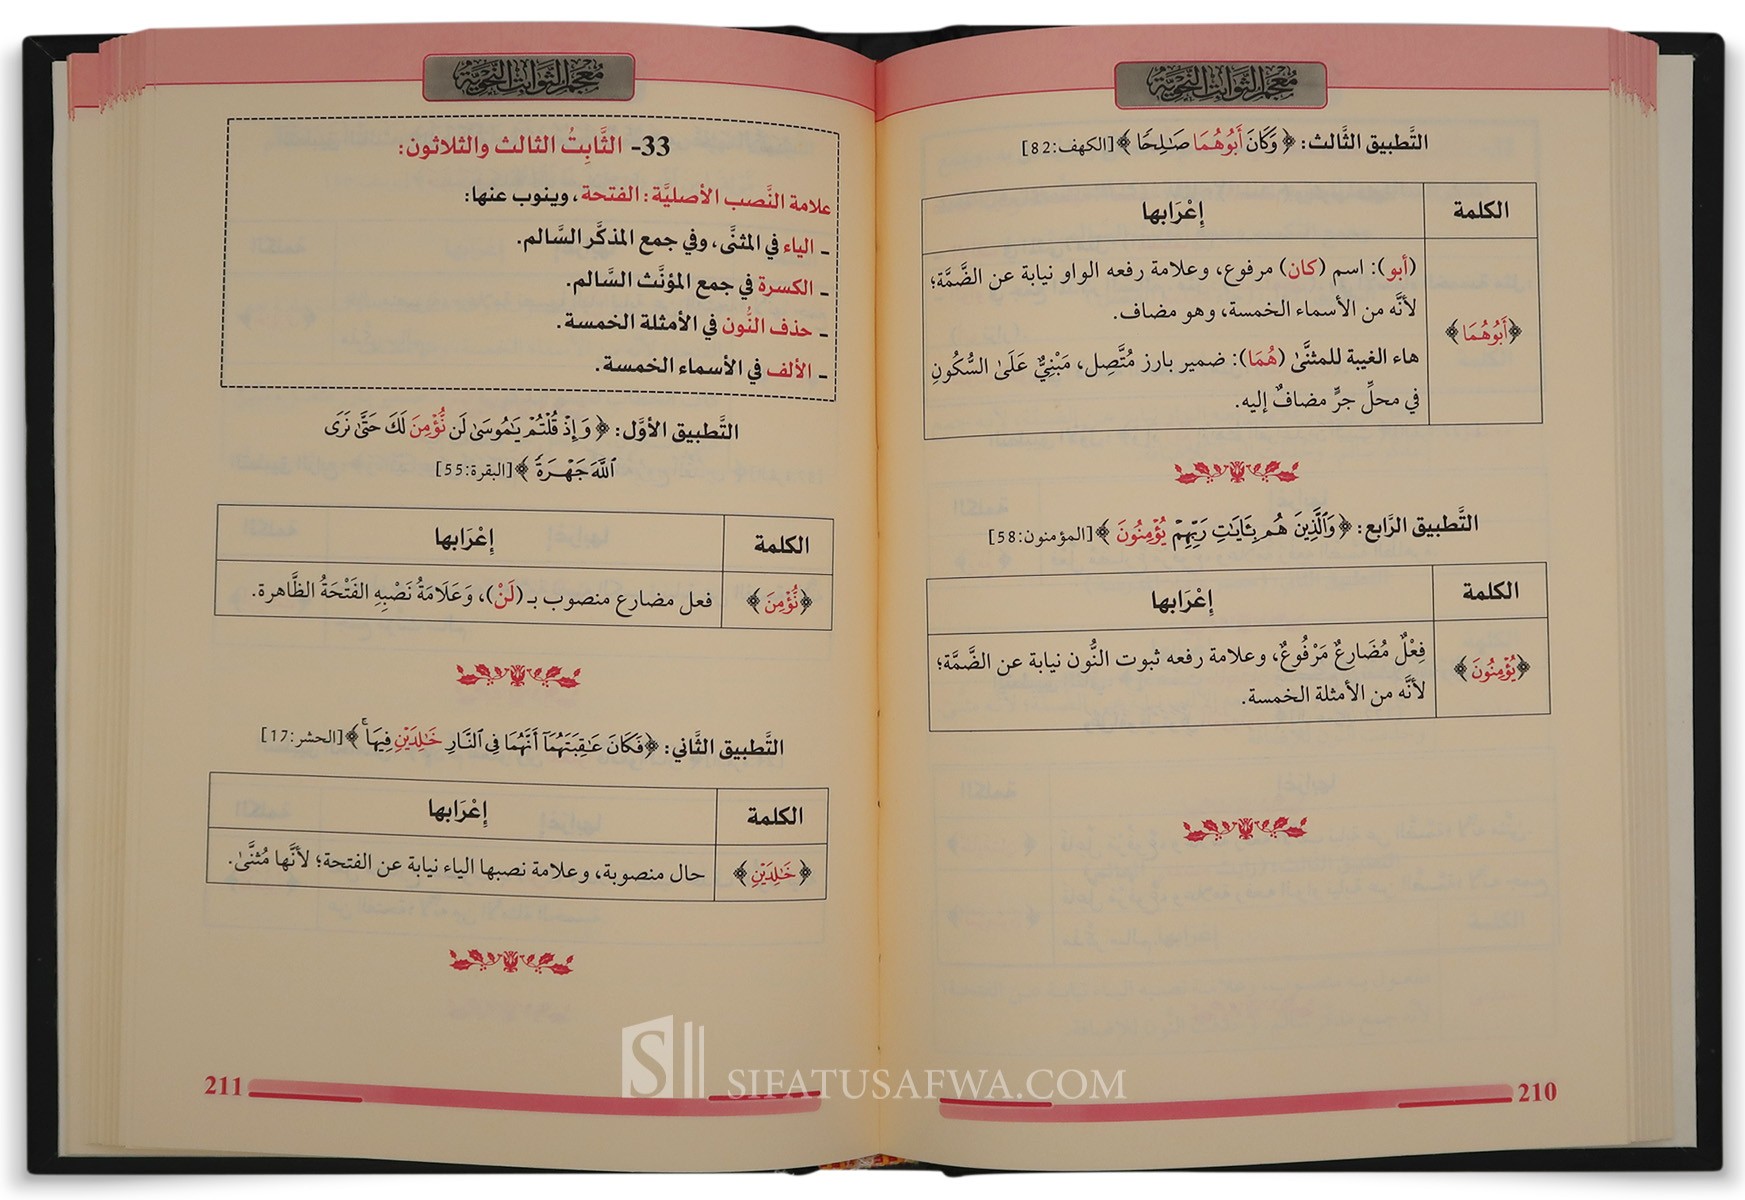 معجم الثوابت النحوية
التَّطبيق الثَّالث: ﴿ وَكَانَ أَبُوهُمَا صَٰلِحًا ﴾ [الكهف:82]
الكلمة إِعْرَابها
﴿أَبُوهُمَا﴾
(أبو): اسم (كان) مرفوع، وعلامة رفعه الواو نيابة عن الضَّمَّة؛
لأنَّه من الأسماء الخمسة، وهو مضاف.
هاء الغيبة للمثنَّىٰ (هُمَا): ضمير بارز مُتَّصِل، مَبْنِيٌّ عَلَىٰ السُّكُونِ
في محلِّ جرٍّ مضافٌ إليه.
التَّطبيق الرَّابع: ﴿ وَٱلَّذِينَ هُم بِـَٔايَٰتِ رَبِّهِمْ يُؤْمِنُونَ ﴾ [المؤمنون:58]
الكلمة إِعْرَابها
﴿يُؤْمِنُونَ﴾
فِعْلٌ مُضَارِعٌ مَرْفُوعٌ، وعلامة رفعه ثبوت النُّون نيابة عن الضَّمَّة؛
لأنَّه من الأمثلة الخمسة.
210
معجم الثوابت النحوية
33- الثَّابِتُ الثالث والثلاثون:
علامة النَّصب الأصليَّة: الفتحة، وينوب عنها:
ـ الياء في المثنَّى، وفي جمع المذكَّر السَّالم.
ـ الكسرة في جمع المؤنَّث السَّالم.
ـ حذف النُّون في الأمثلة الخمسة.
ـ الألف في الأسماء الخمسة.
التَّطبيق الأوَّل: ﴿ وَإِذْ قُلْتُمْ يَٰمُوسَىٰ لَن نُّؤْمِنَ لَكَ حَتَّىٰ نَرَى
ٱللَّهَ جَهْرَةً ﴾ [البقرة:55]
الكلمة إِعْرَابها
﴿نُّؤْمِنَ﴾ فعل مضارع منصوب بـ (لَنْ)، وَعَلَامَةُ نَصْبِهِ الفَتْحَةُ الظَّاهرة.
التَّطبيق الثَّاني: ﴿فَكَانَ عَٰقِبَتَهُمَآ أَنَّهُمَا فِى ٱلنَّارِ خَٰلِدَيْنِ فِيهَا ۚ ﴾ [الحشر:17]
الكلمة إِعْرَابها
﴿خَٰلِدَيْنِ﴾ حال منصوبة، وعلامة نصبها الياء نيابة عن الفتحة؛ لأنَّها مُثنَّىٰ.
211
SIFATUSAFWA.COM